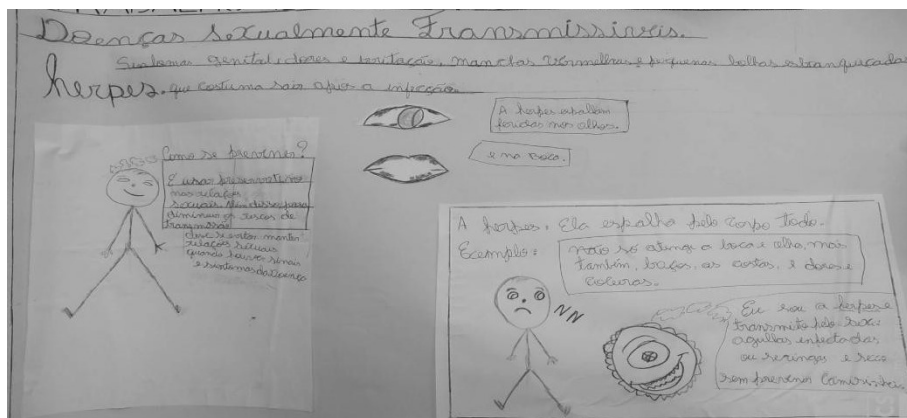 Doenças Sexualmente Transmissíveis.
Sintomas Genital: dores e irritação, manchas vermelhas e pequenas bolhas esbranquiçadas
herpes. que costuma sair após a infecção
A herpes espalham
feridas nos olhos.
e na boca.
Como se prevenir?
É usar preservativo
nas relações
sexuais. Além disso, para
diminuir os riscos de
transmissão
deve se evitar manter
relações sexuais
quando houver sinais
e sintomas da doença
A herpes. Ela espalha pelo corpo todo.
Exemplo:
não só atinge a boca e olho, mais
também, braços, as costas, e dores e
coceiras.
Eu sou a herpes e
transmito pelo sexo
agulhas enfectadas
ou seringas e sexo
sem prevenir